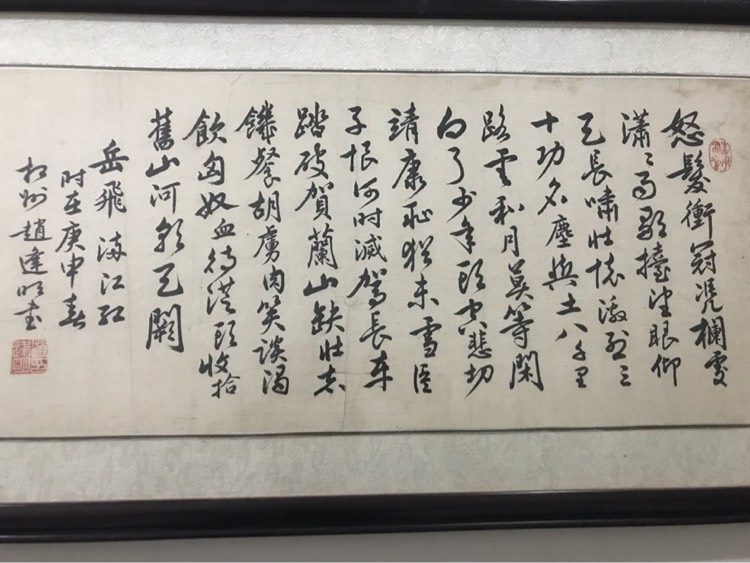 怒髮衝冠凭欄處
瀟〻雨歇擡望眼仰
天長嘯壯懷激烈三
十功名塵與土八千里
路雲和月莫等閑
白了少年頭空悲切
靖康恥猶未雪臣
子恨何時滅駕長車
踏破賀蘭山缺壯志
饑餐胡虜肉笑談渴
飲匈奴血待從頭收拾
舊山河朝天闕
岳飛滿江紅
時在庚申春
杭州趙達明書